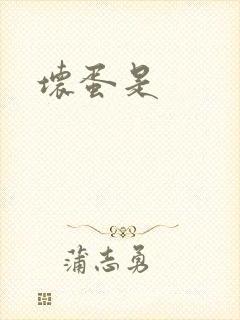 壞蛋是
蒲志勇